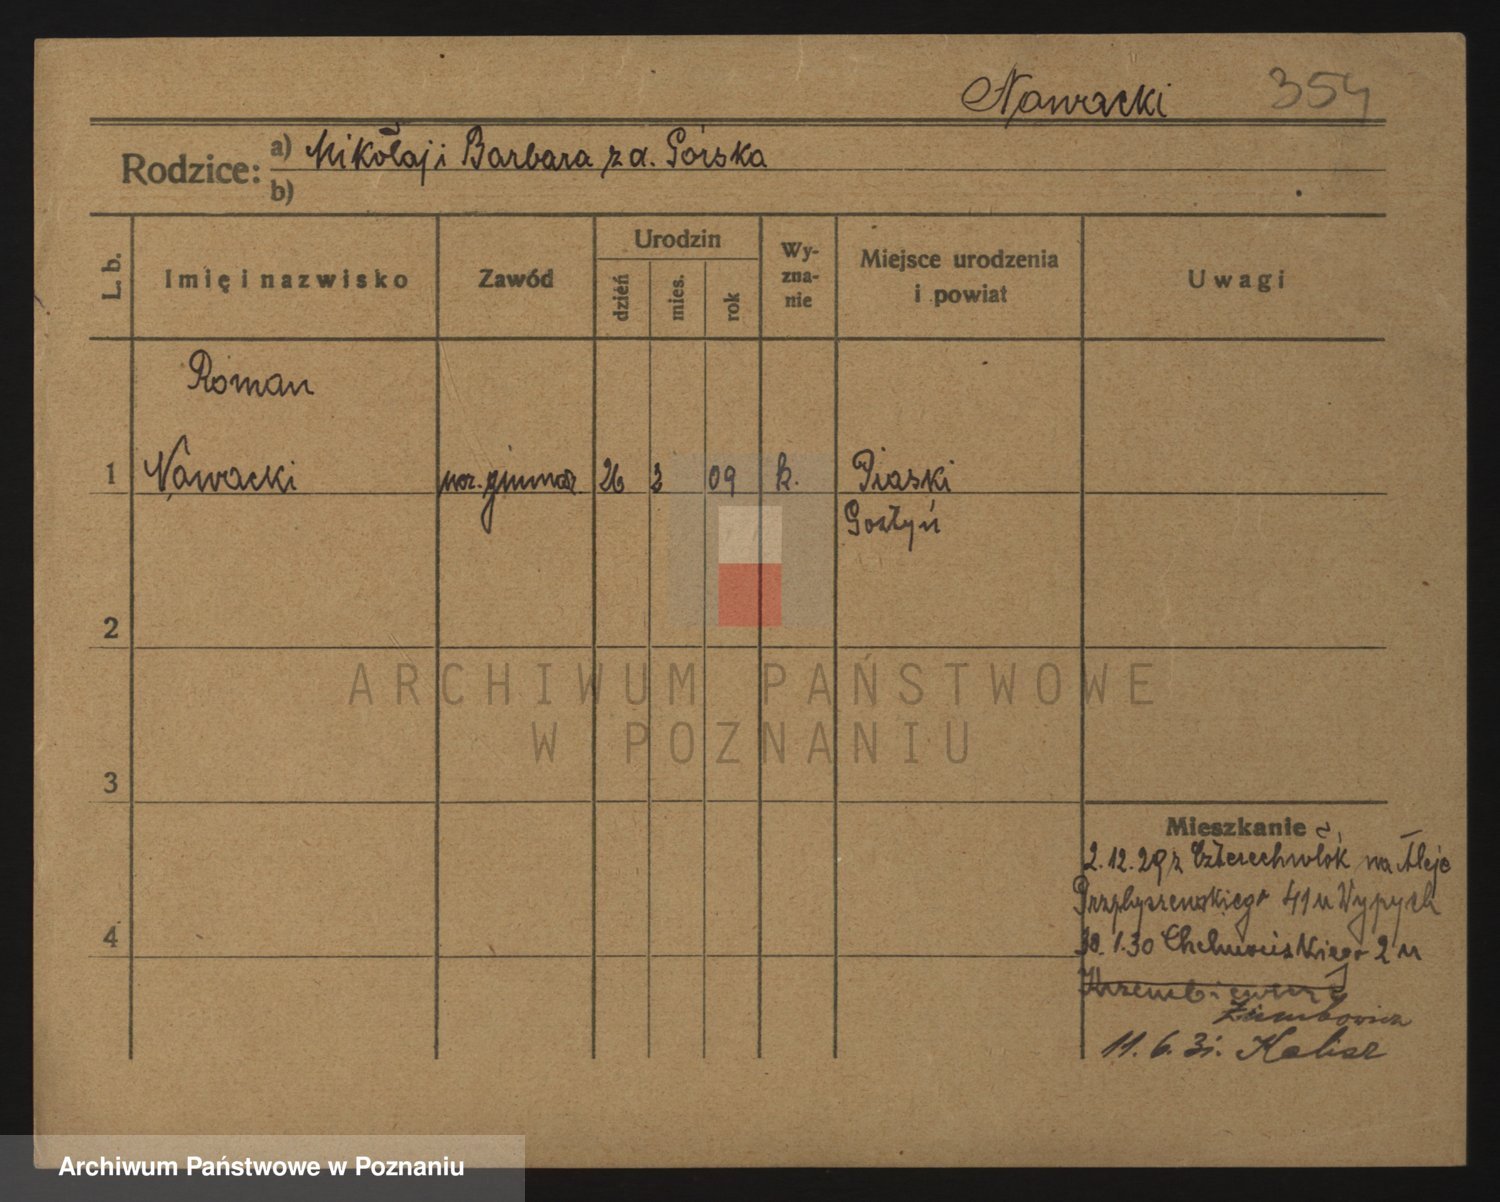 Nawracki 354
Rodzice: a) Mikołaj i Barbara z d. Górska
b)
L. b. Imię i nazwisko Zawód Urodzin dzień mies. rok Wyznanie Miejsce urodzenia i powiat Uwagi
Roman
1 Nawracki 26 3 09 k. Piaski
Gostyń
2
ARCHIWUM PAŃSTWOWE
W POZNANIU
3
Mieszkanie
2.12.29 z na Aleje
Przybyszewskiego 41 u Wypych
30.1.30 2 u
11.6.31. Kalisz
4
Archiwum Państwowe w Poznaniu